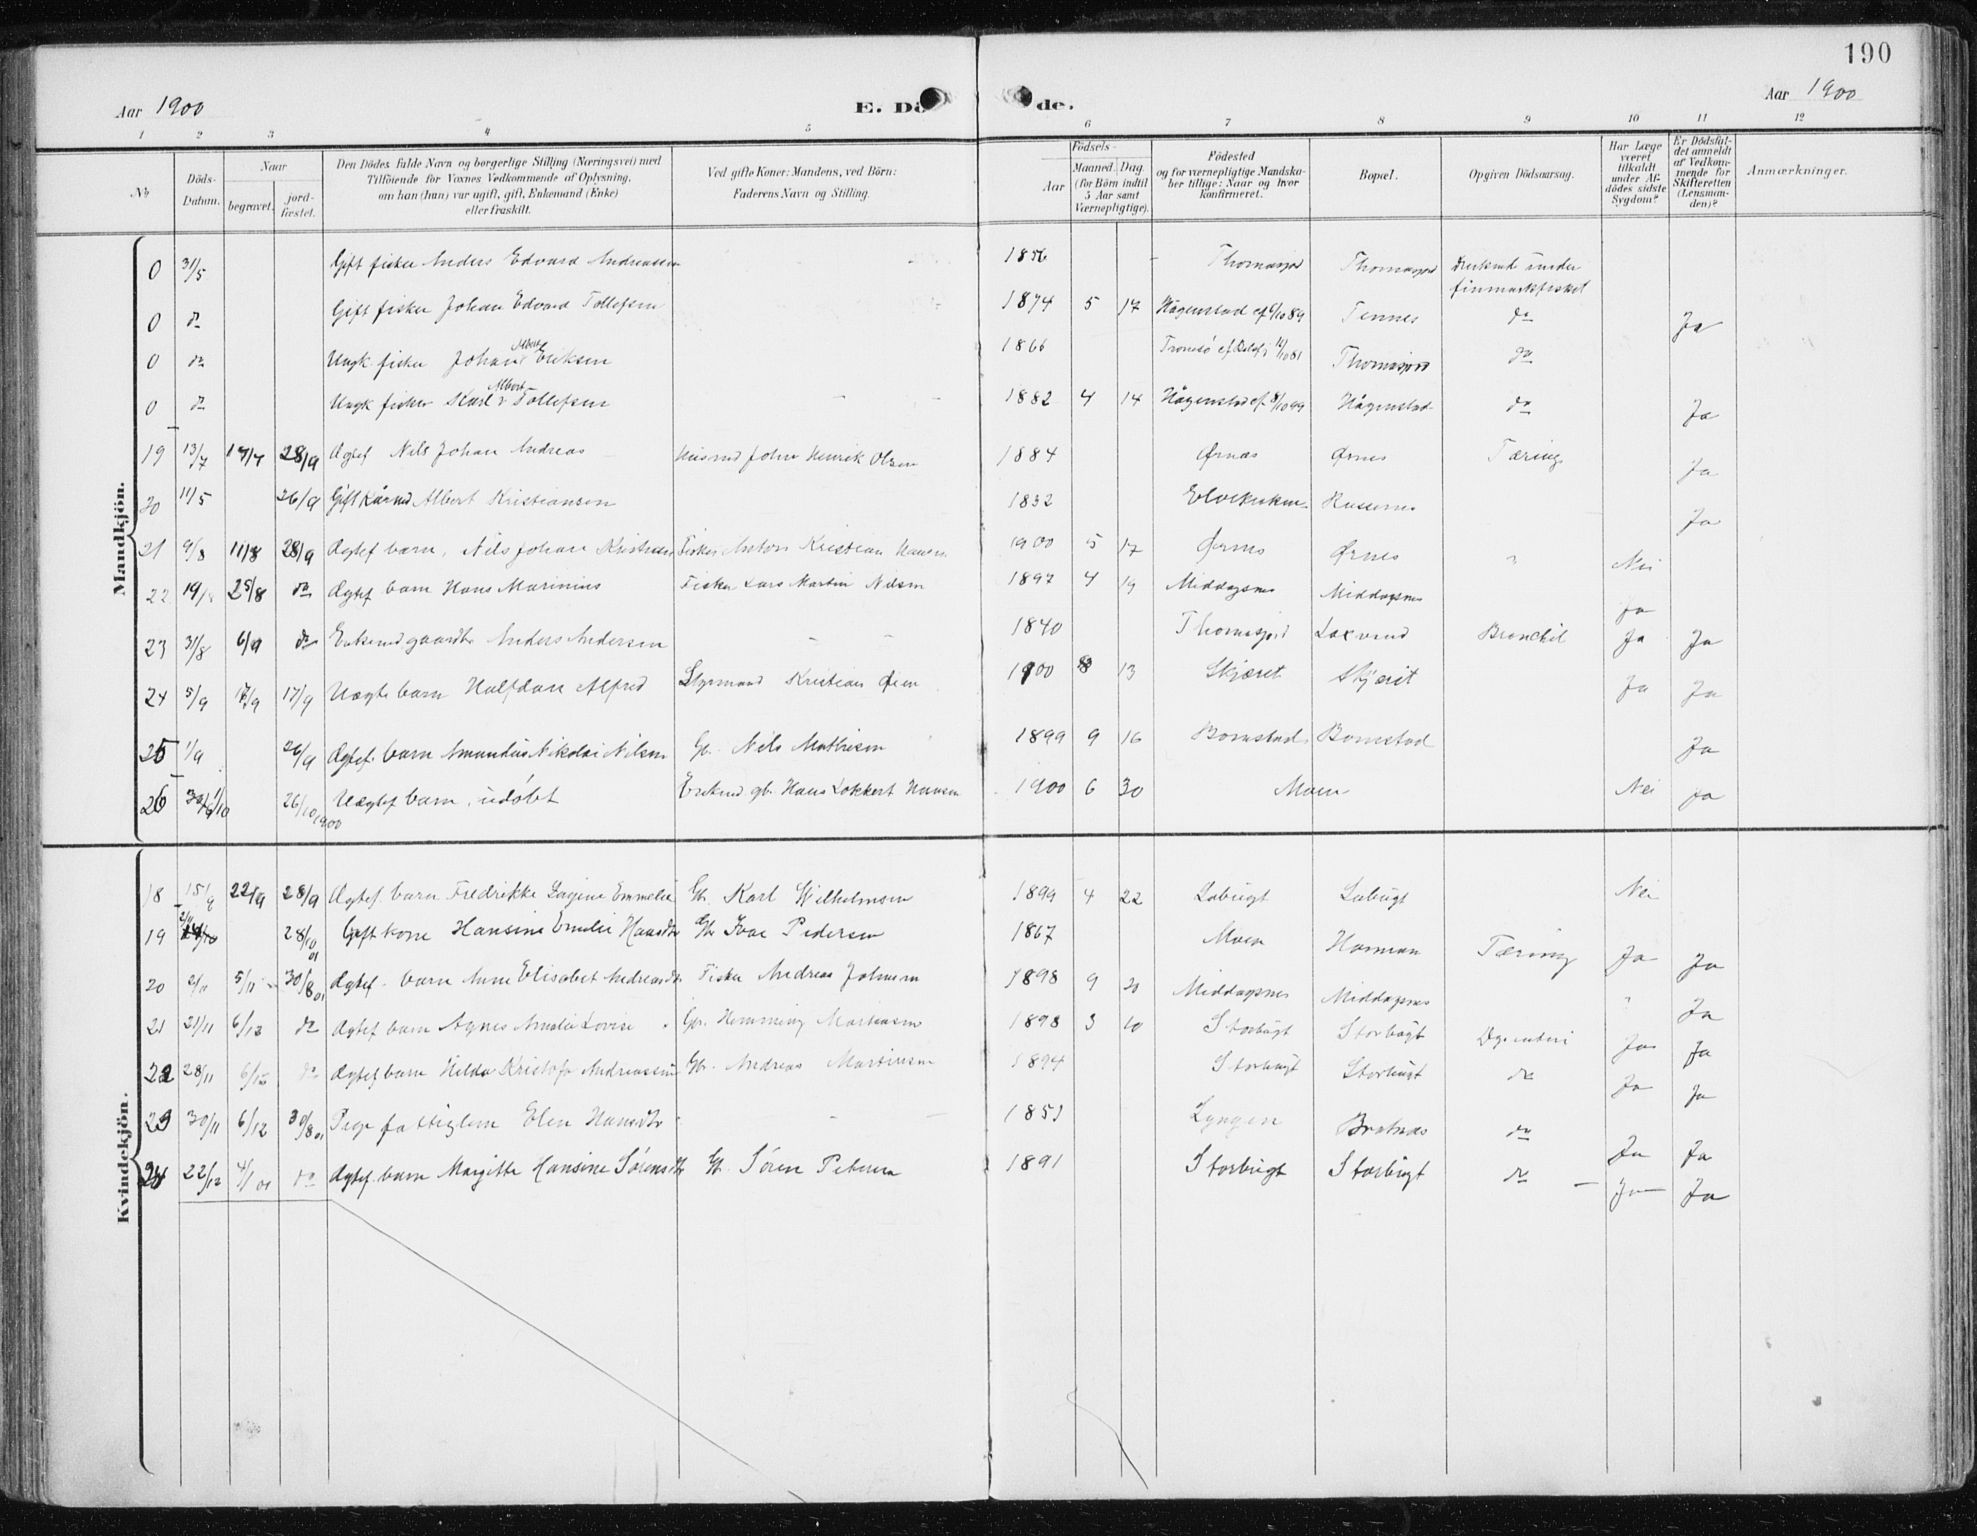 190
Aar 1900
E. Dö de.
Aar 1900
1 2 3 4 5 6 7 8 9 10 11 12
No
Döds-Datum.
Naar
begravet.
jord-fæstet.
Den Dödes fulde Navn og borgerlige Stilling (Næringsvei) med
Tilföiende for Voxnes Vedkommende af Oplysning,
om han (hun) var ugift, gift, Enkemand (Enke)
eller fraskilt.
Ved gifte Koner: Mandens, ved Börn:
Faderens Navn og Stilling.
Födsels-
Aar
Maaned. Dag.
(for Börn indtil
5 Aar samt
Værnepligtige).
Födested
og for værnepligtige Mandska-
ber tillige: Naar og hvor
konfirmeret.
Bopæl.
Opgiven Dödsaarsag.
Har Læge
været
tilkaldt
under Af-
dödes sidste
Sygdom?
Er Dödsfal-
det anmeldt
af Vedkom-
mende for
Skifteretten
(Lensman-
den)?
Anmærkninger.
Mandkjön.
0 31/5 Gift fisker Anders Edvard Andreassen 1856 Thomasjord Thomasjord Druknet under finmarkfisket
0 do Gift fisker Johan Edvard Tollefsen 1874 5 17 Hågenstad cf 6/10 89 Tennes do Ja
0 do Ungk. fisker Johan Albert Eriksen 1866 Tromsö cf. Balsfj 12/10 81 Thomasjord do
0 do Ungk fisker Karl Albert Tollefsen 1882 4 14 Hågenstad cf. 8/10 99 Hågenstad do Ja
19 13/7 17/7 28/9 Ægtef Nils Johan Andreas Husmd John Henrik Olsen 1884 Ørnes Ørnes Tæring Ja
20 11/5 26/9 Gift Kårmd Albert Kristiansen 1832 Elvekroken Russenes Ja
21 9/8 11/8 28/9 Ægtef barn, Nils Johan Kristian Fisker Anton Kristian Hansen 1900 5 17 Ørnes Ørnes " Nei
22 19/8 25/8 do Ægtef barn Hans Marinius Fisker Lars Martin Nilsen 1897 4 19 Middagsnes Middagsnes Ja
23 31/8 6/9 do Enkemd gaardbr Anders Andersen 1840 Thomasjord Laxvand Bronchit Ja Ja
24 5/9 17/9 17/9 Uægte barn Halfdan Alfred Styrmand Kristian Øien 1900 8 13 Skjæret Skjæret Ja Ja
25 1/9 26/9 Ægtef. barn Amandus Nikolai Nilsen Gb. Nils Mathisen 1899 9 16 Bomstad Bomstad Ja
26 1/10 26/10 1900 Uægtef barn, udöbt Enkmd gb. Hans Lokkert Hansen 1900 6 30 Moen Nei Ja
Kvindekjön.
18 15/9 22/9 28/9 Ægtef. barn Fredrikke Lagine Emmelie Gb. Karl Wilhelmsen 1899 4 22 Labugt Labugt Nei
19 2/11 28/10 01 Gift kone Hansine Emilie Hansdtr Gb Ivar Pedersen 1867 Moen Hamnan Tæring Ja Ja
20 2/11 5/11 30/8 01 Ægtef. barn Anne Elisabet Andreasdtr Fisker Andreas Johnsen 1898 9 20 Middagsnes Middagsnes " Ja
21 21/11 6/12 do Ægtef barn Agnes Amalie Lovise Gb. Hemming Martinsen 1898 3 10 Storbugt Storbugt Dysenteri Ja Ja
22 28/11 6/12 do Ægtef barn Hilda Kristofa Andreassen Gb. Andreas Martinsen 1894 Storbugt Storbugt do Ja Ja
23 30/11 6/12 30/8 01 Pige fattiglem Elen Hansdtr 1851 Lyngen Bratnæs do Ja Ja
24 22/12 4/1 01 do Ægtef. barn Margitte Hansine Sörensdtr Gb. Sören Petersen 1891 Storbugt Storbugt do Ja Ja